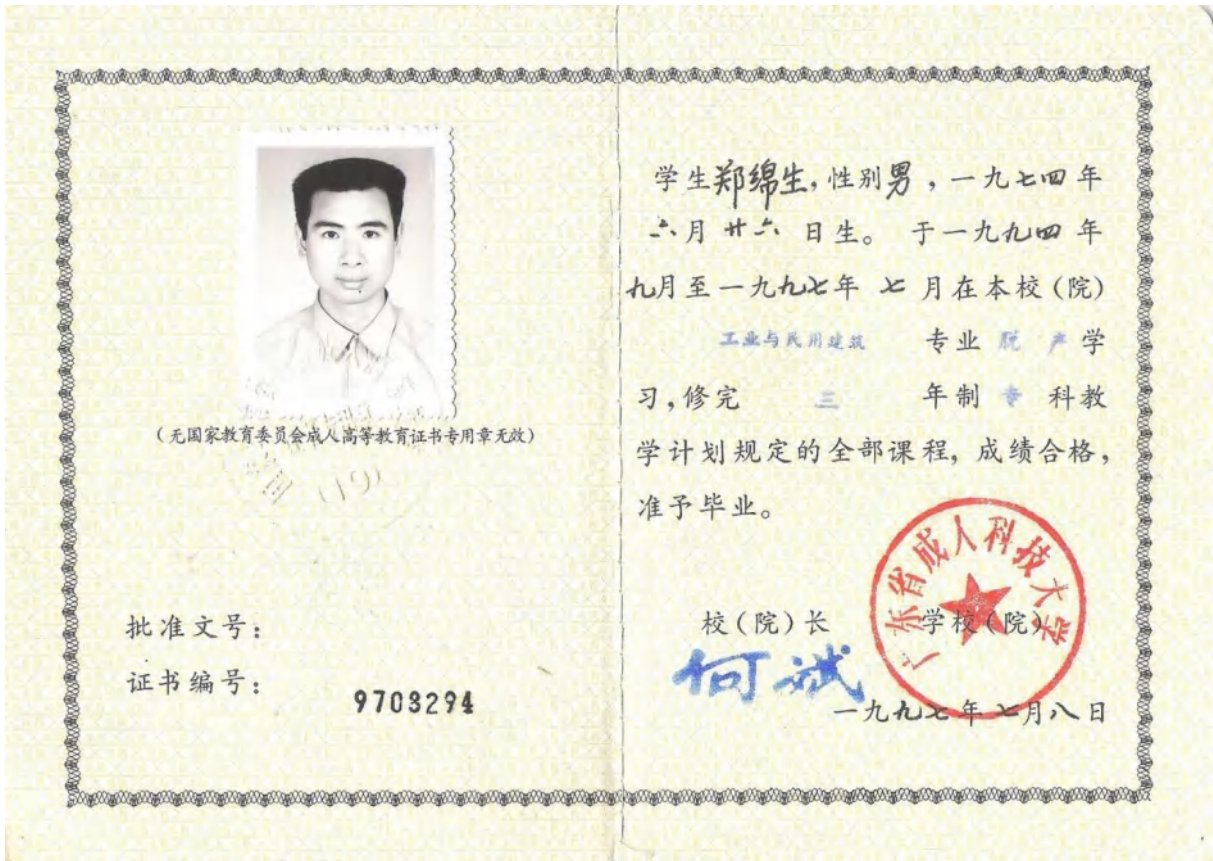 (无国家教育委员会成人高等教育证书专用章无效)
(19)
批准文号:
证书编号:
9703294
学生郑绵生,性别男,一九七四年
六月廿六日生。于一九九四年
九月至一九九七年七月在本校(院)
工业与民用建筑 专业 脱产学
习,修完 三 年制 专 科教
学计划规定的全部课程,成绩合格,
准予毕业。
校(院)长 学校(院)
何斌
广东省成人科技大学
一九九七年七月八日